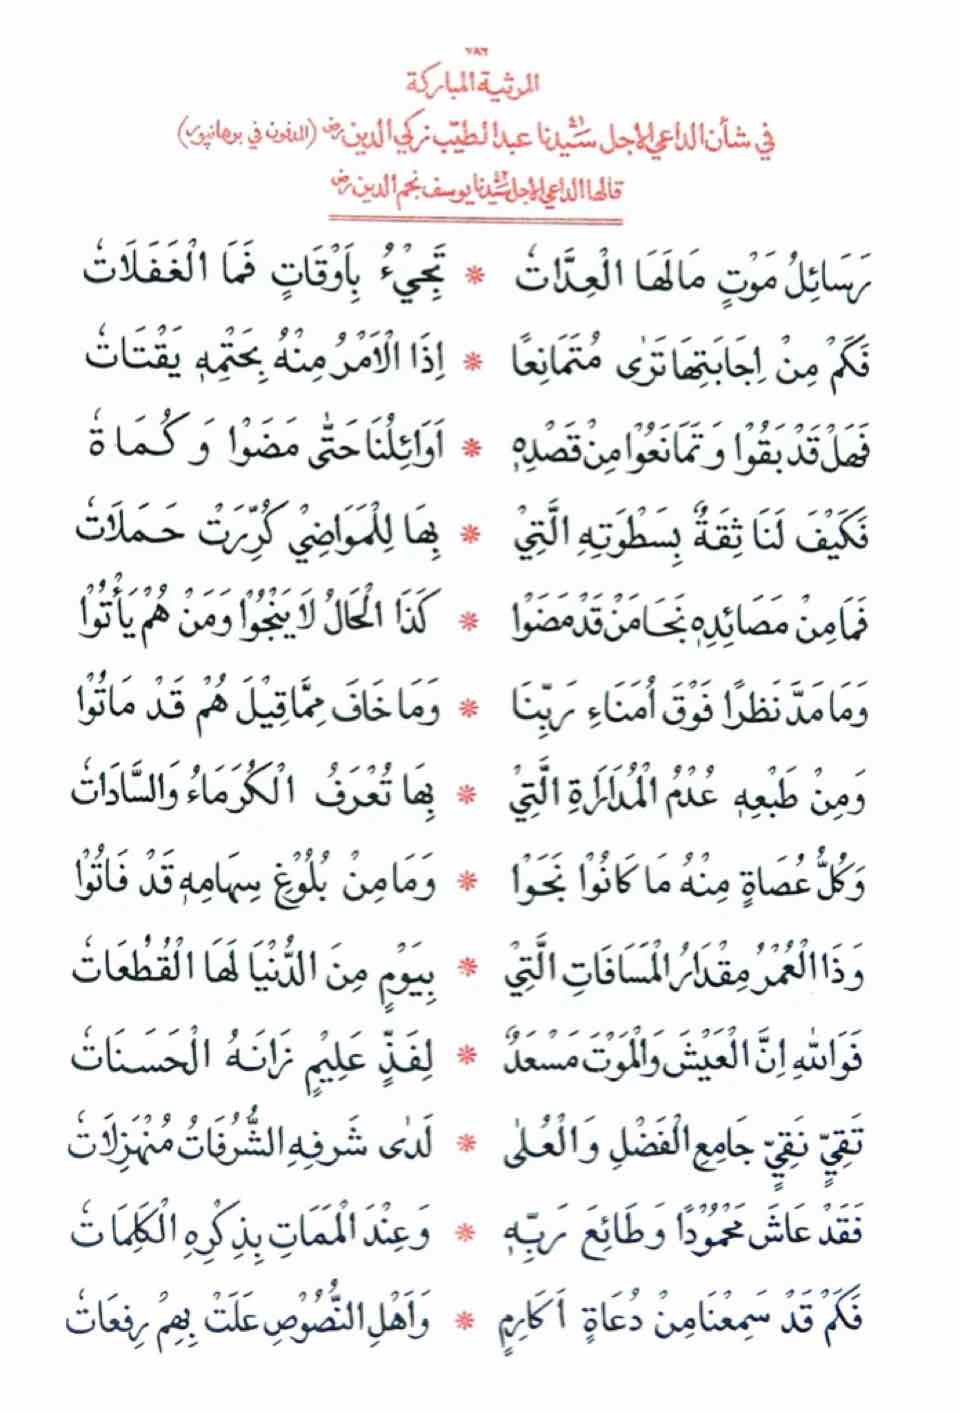 ٧٨٦
المرثية المباركة
في شأن الداعي الاجل سيدنا عبد الطيب زكي الدين رض (المدفون في برهانپور)
قالها الداعي الاجل سيدنا يوسف نجم الدين رض
رَسَائِلُ مَوْتٍ مَالَهَا الْعِدَّاتُ * تَجِيْءُ بِاَوْقَاتٍ فَمَا الْغَفَلَاتُ
فَكَمْ مِنْ اِجَابَتِهَا تَرٰى مُتَمَانِعًا * اِذَا الْاَمْرُ مِنْهُ بِحَتْمِهٖ يَقْتَاتُ
فَهَلْ قَدْ بَقُوْا وَتَمَانَعُوْا مِنْ قَصْدِهٖ * اَوَائِلُنَا حَتّٰى مَضَوْا وَكُمَاةُ
فَكَيْفَ لَنَا ثِقَةٌ بِسَطْوَتِهِ الَّتِيْ * بِهَا لِلْمَوَاضِيْ كُرِّرَتْ حَمَلَاتُ
فَمَا مِنْ مَصَائِدِهٖ نَجَا مَنْ قَدْ مَضَوْا * كَذَا الْحَالُ لَا يَنْجُوْا وَمَنْ هُمْ يَأْتُوْا
وَمَا مَدَّ نَظْرًا فَوْقَ اُمَنَاءِ رَبِّنَا * وَمَا خَافَ مِمَّا قِيْلَ هُمْ قَدْ مَاتُوْا
وَمِنْ طَبْعِهٖ عُدْمُ الْمُدَارَاةِ الَّتِيْ * بِهَا تُعْرَفُ الْكُرَمَاءُ وَالسَّادَاتُ
وَكُلُّ عُصَاةٍ مِنْهُ مَا كَانُوْا نَجَوْا * وَمَا مِنْ بُلُوْغِ سِهَامِهٖ قَدْ فَاتُوْا
وَذَا الْعُمْرُ مِقْدَارُ الْمَسَافَاتِ الَّتِيْ * بِيَوْمٍ مِنَ الدُّنْيَا لَهَا الْقُطُعَاتُ
فَوَاللهِ اِنَّ الْعَيْشَ وَالْمَوْتَ مَسْعَدٌ * لِفَذٍّ عَلِيْمٍ زَانَهُ الْحَسَنَاتُ
تَقِيٍّ نَقِيٍّ جَامِعِ الْفَضْلِ وَالْعُلٰى * لَدٰى شَرَفِهِ الشُّرُفَاتُ مُنْهَزِلَاتُ
فَقَدْ عَاشَ مَحْمُوْدًا وَطَائِعَ رَبِّهٖ * وَعِنْدَ الْمَمَاتِ بِذِكْرِهِ الْكَلِمَاتُ
فَكَمْ قَدْ سَمِعْنَا مِنْ دُعَاةٍ اَكَارِمٍ * وَاَهْلِ النُّصُوْصِ عَلَتْ بِهِمْ رِفِعَاتُ